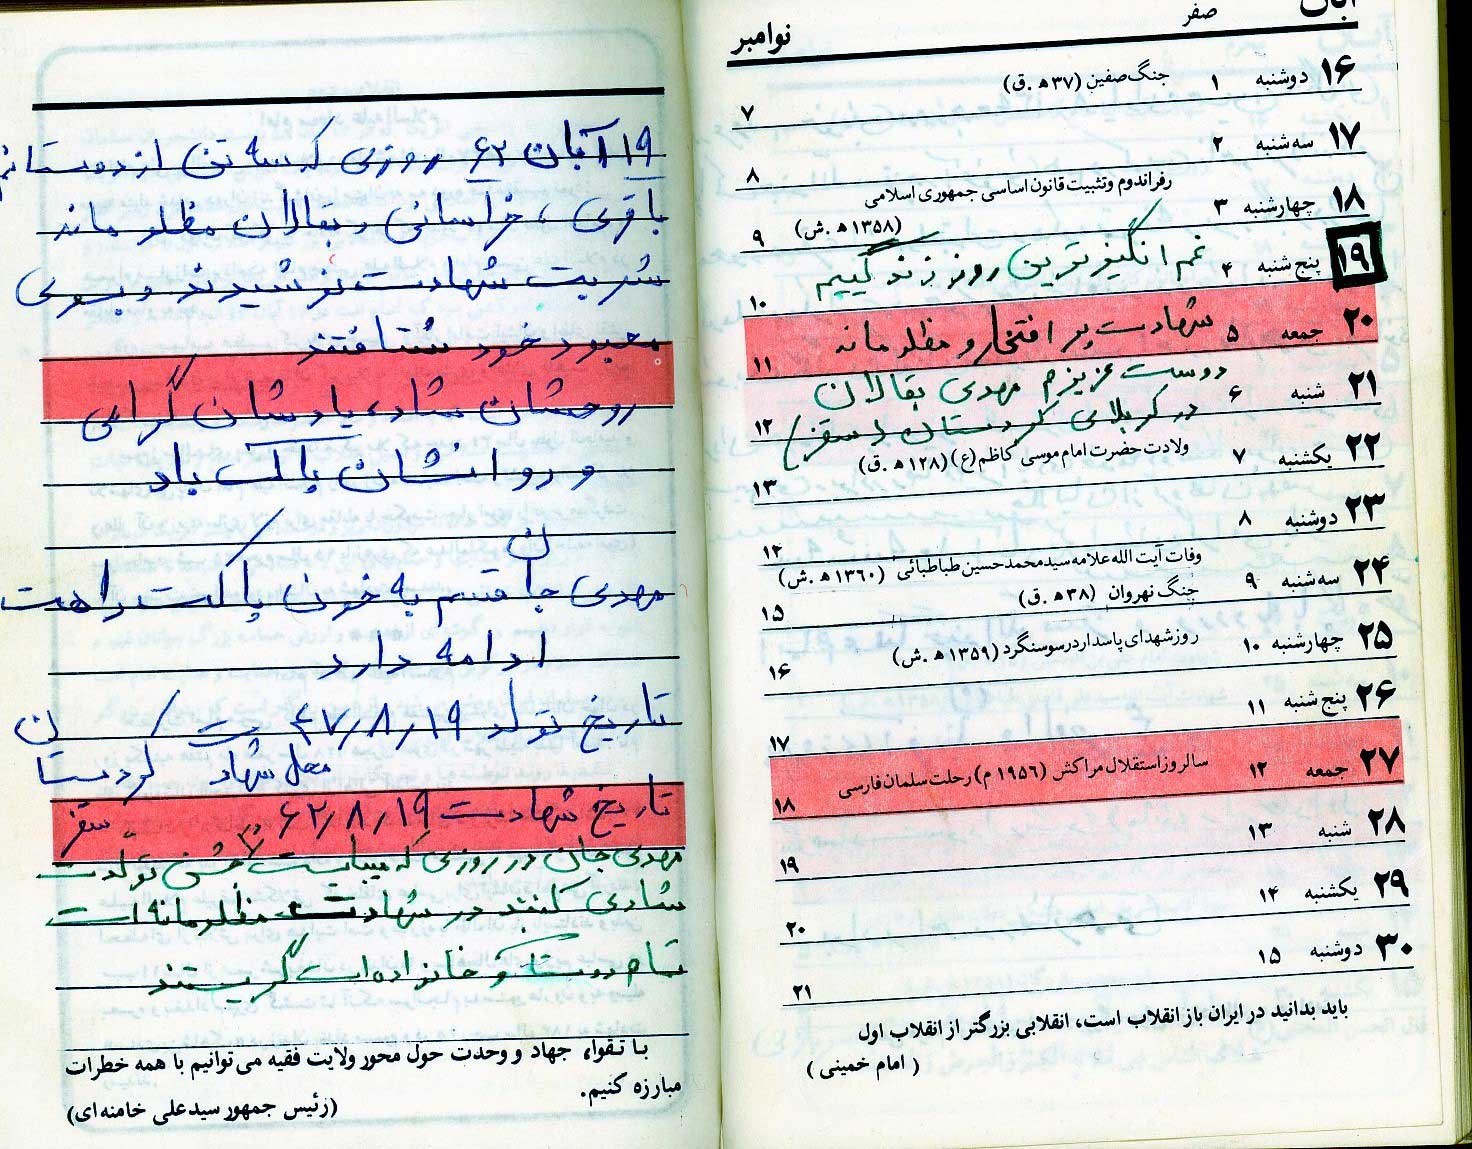 آبان
صفر
نوامبر
۱۶ دوشنبه ۱ جنگ صفین (۳۷ ه‍ .ق)
۷
۱۷ سه شنبه ۲
۸
رفراندوم و تثبیت قانون اساسی جمهوری اسلامی
۱۸ چهارشنبه ۳
(۱۳۵۸ ه‍ .ش) ۹
۱۹ پنج شنبه ۴ غم انگیز ترین روز زندگییم
۱۰
۲۰ جمعه ۵ شهادت پر افتخار و مظلومانه
۱۱
دوست عزیزم مهدی بقالان
۲۱ شنبه ۶ در کربلای کردستان (سقز)
۱۲
۲۲ یکشنبه ۷ ولادت حضرت امام موسی کاظم (ع) (۱۲۸ ه‍ .ق)
۱۳
۲۳ دوشنبه ۸
۱۴
وفات آیت الله علامه سید محمد حسین طباطبائی (۱۳۶۰ ه‍ .ش)
۲۴ سه شنبه ۹ جنگ نهروان (۳۸ ه‍ .ق)
۱۵
۲۵ چهارشنبه ۱۰ روز شهدای پاسدار در سوسنگرد (۱۳۵۹ ه‍ .ش)
۱۶
۲۶ پنج شنبه ۱۱
۱۷
۲۷ جمعه ۱۲ سالروز استقلال مراکش (۱۹۵۶ م) رحلت سلمان فارسی
۱۸
۲۸ شنبه ۱۳
۱۹
۲۹ یکشنبه ۱۴
۲۰
۳۰ دوشنبه ۱۵
۲۱
باید بدانید در ایران باز انقلاب است، انقلابی بزرگتر از انقلاب اول
(امام خمینی)
۱۹ آبان ۶۲ روزی که سه تن از دوستانم
باقری ، خراسانی و بقالان مظلومانه
شربت شهادت نوشیدند و بسوی
معبود خود شتافتند
روحشان شاد، یادشان گرامی
و روانشان پاک باد
مهدی جان قسم به خون پاکت راهت
ادامه دارد
تاریخ تولد ۴۷/۸/۱۹
محل شهادت کردستان
تاریخ شهادت ۶۲/۸/۱۹ سقز
مهدی جان در روزی که میبایست جشن تولدت
شادی کنند در شهادت مظلومانه ات
تمام دوستان و خانواده ات گریستند
با تقواء جهاد و وحدت حول محور ولایت فقیه می توانیم با همه خطرات
مبارزه کنیم.
(رئیس جمهور سید علی خامنه ای)